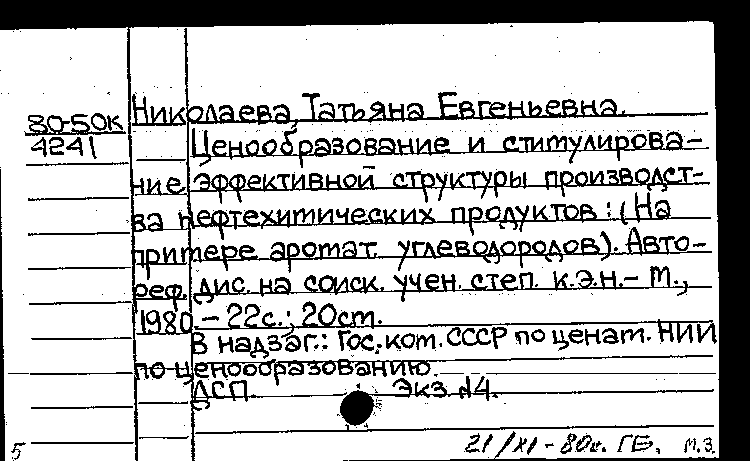 Николаева, Татьяна Евгеньевна.
80-50к
4241
Ценообразование и стимулирова-
ние эффективной структуры производст-
ва нефтехимических продуктов: (На
примере аромат. углеводородов). Авто-
реф. дис. на соиск. учен. степ. к.э.н. - М.,
1980. - 22с.; 20см.
В надзаг.: Гос. ком. СССР по ценам. НИИ
по ценообразованию.
ДСП. Экз. №4.
21/XI - 80г. ГБ. М.З.
5